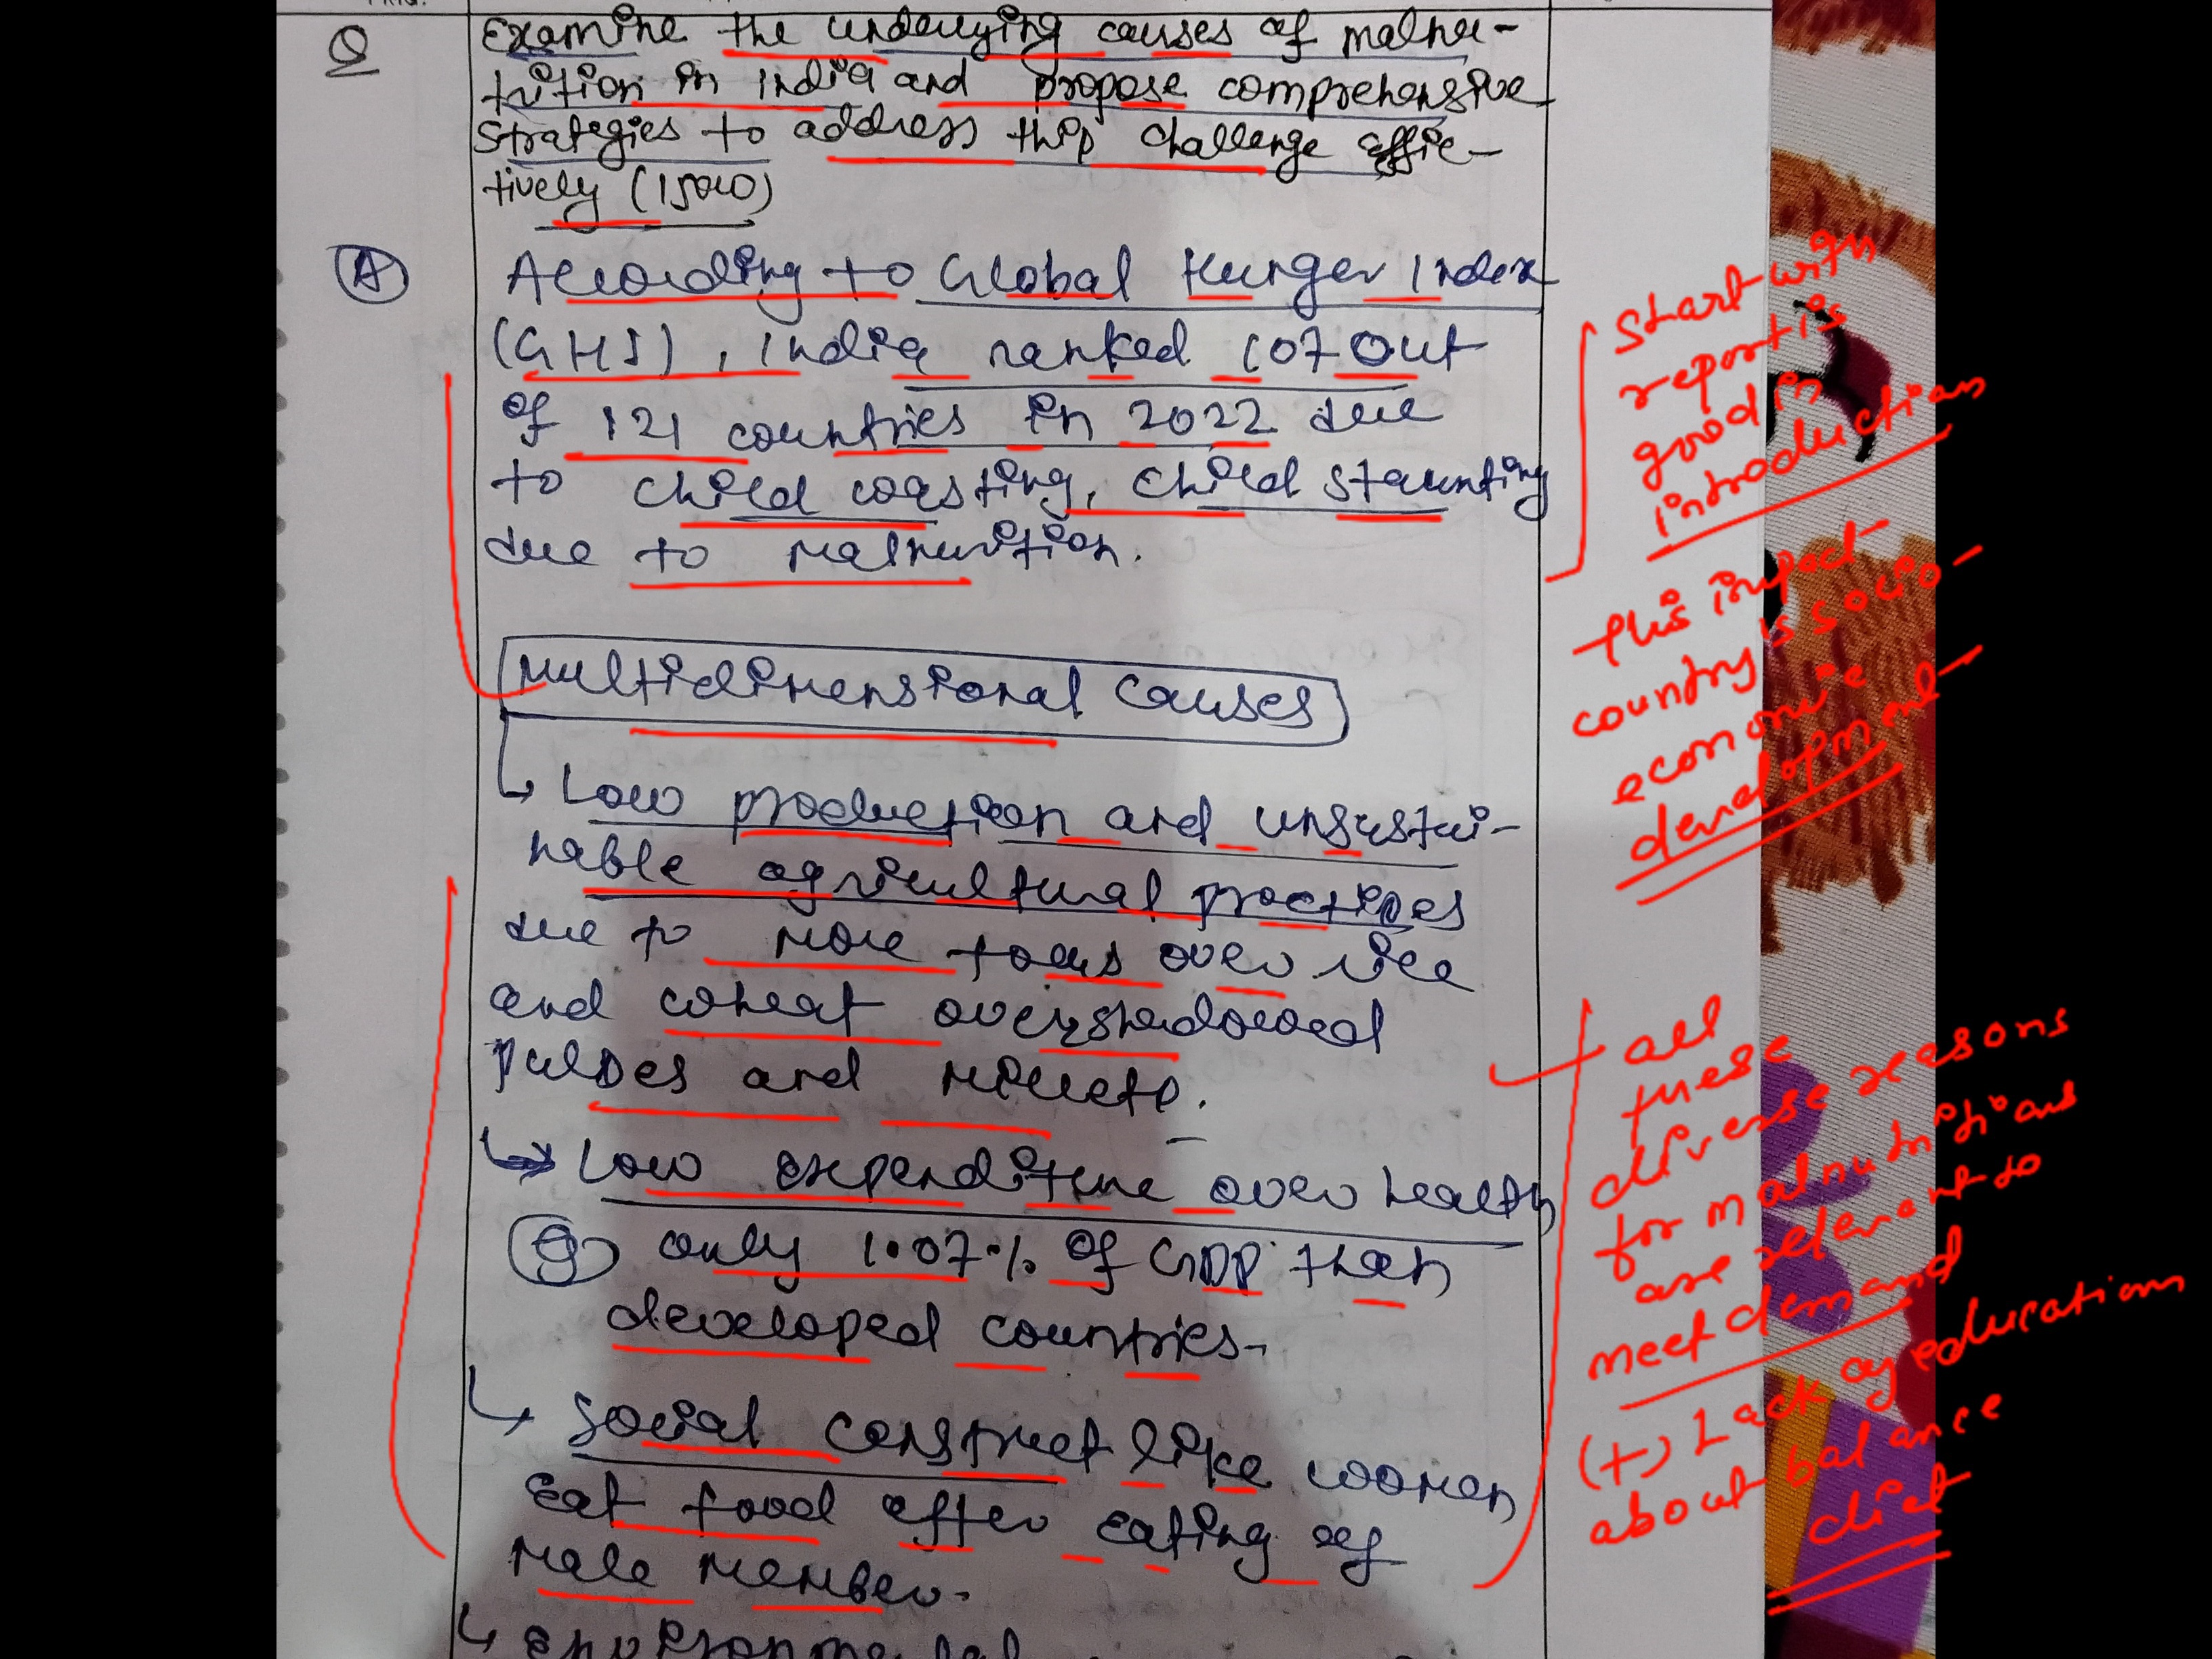 Q
Examine the underlying causes of malnu-
trition in India and propose comprehensive
strategies to address this challenge effec-
tively (150w)
A
According to Global Hunger Index
(GHI), India ranked 107 out
of 121 countries in 2022 due
to child wasting, child staunting
due to malnurition.
Multidimensional causes
Low production and unsustai-
nable agricultural practices
due to more focus over rice
and wheat overshadowed
pulses and millets.
Low expenditure over health
eg only 1.07% of GDP than
developed countries.
Social construct like women
eat food after eating of
male member.
start with
report is
good in
introduction
this impact
country's socio-
economic
development
all
these
diverse reasons
for malnutritions
are relevant to
meet demand
(+) Lack of education
about balance
diet